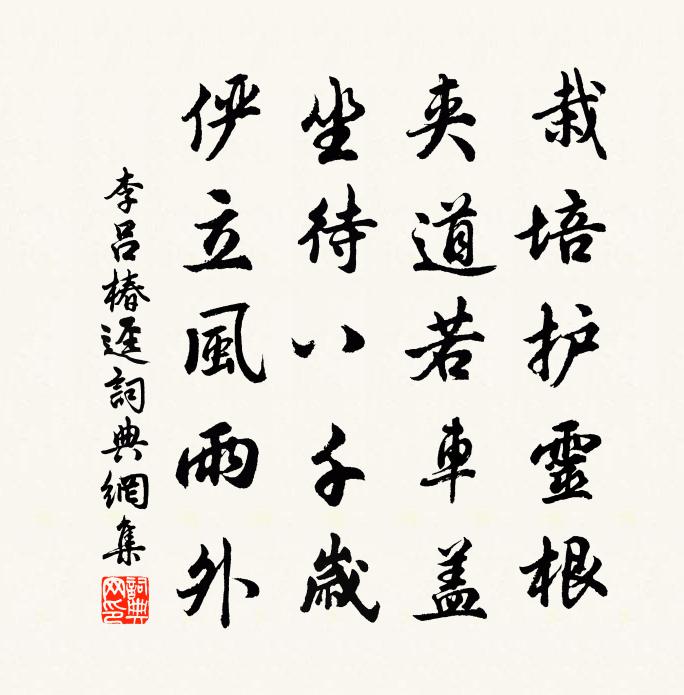 栽培护靈根
夾道若車盖
坐待八千歲
俨立風雨外
李呂椿逕詞典網集
詞典網印